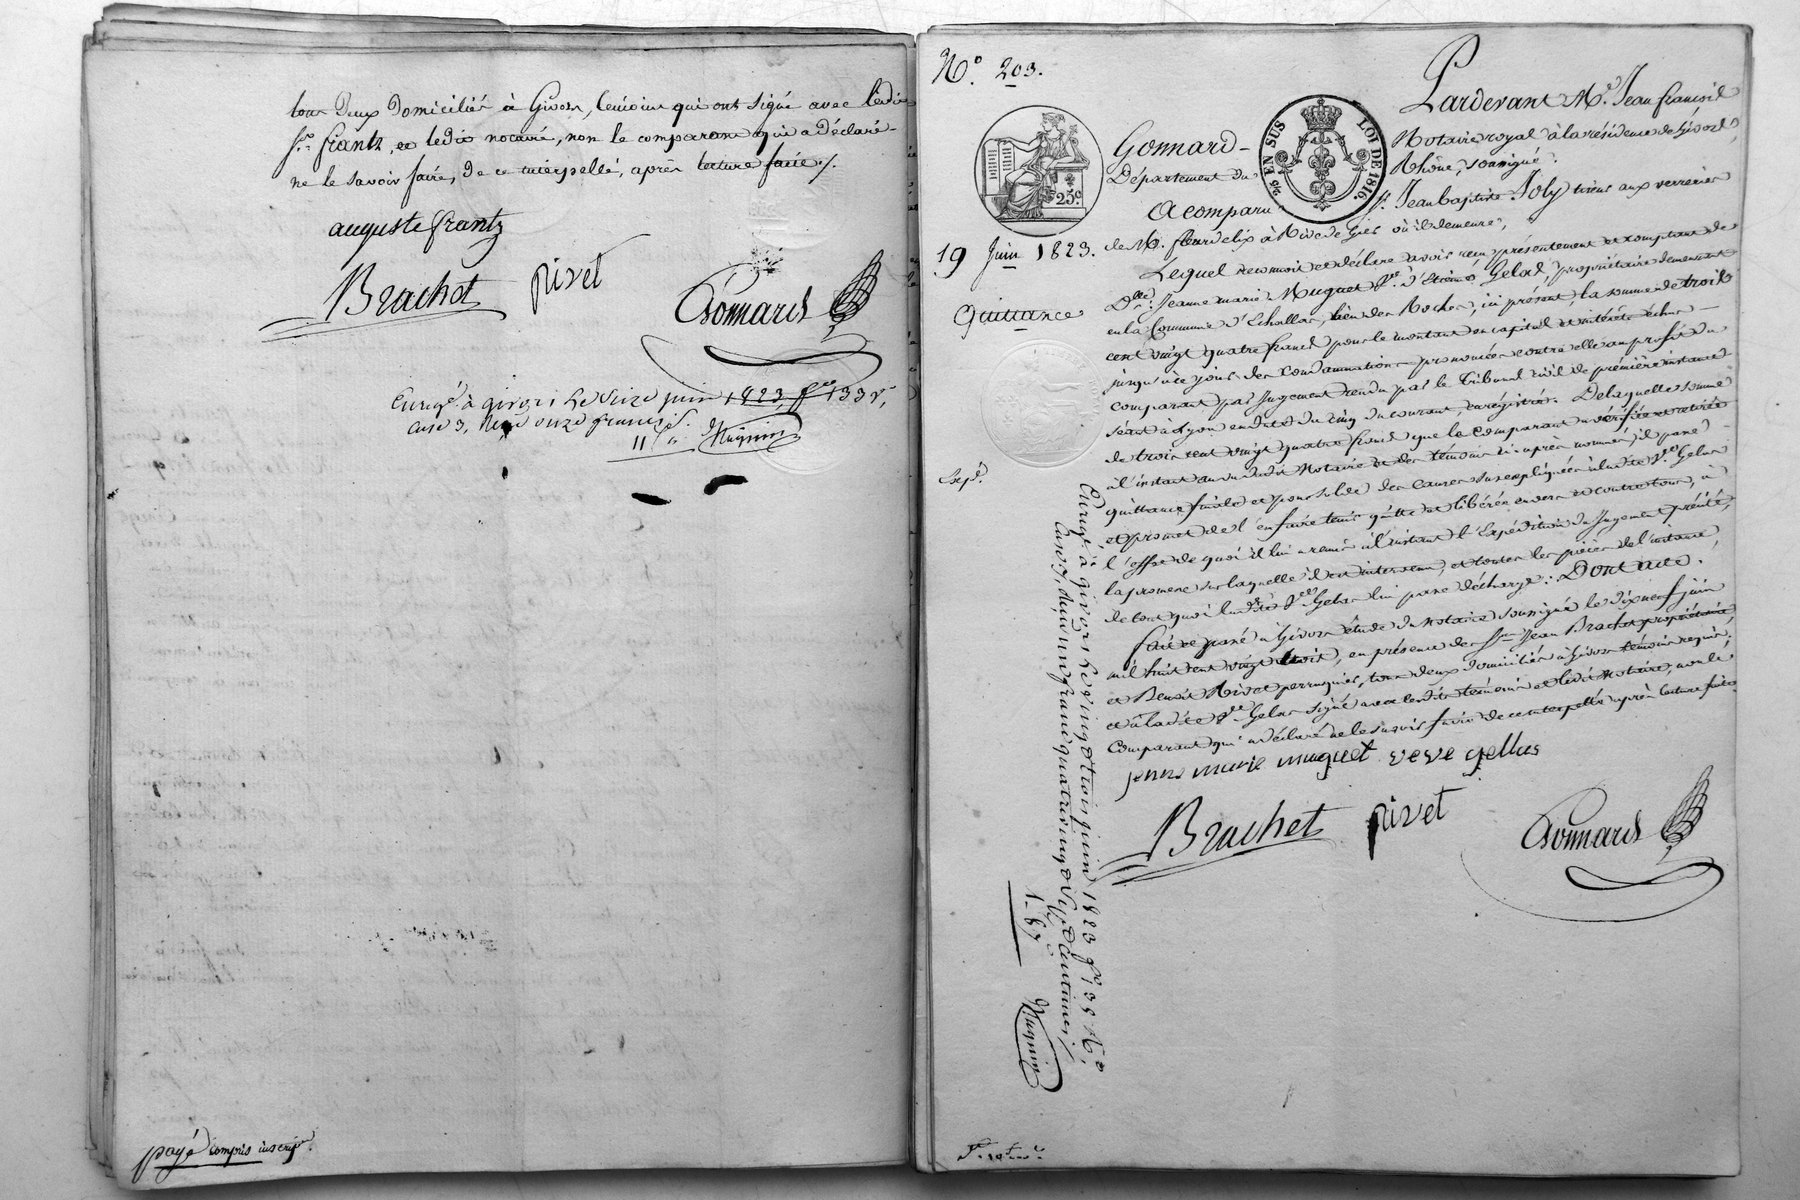 tous deux domiciliés à Givors, témoins qui ont signé avec ledit
Sr. frantz, et ledit notaire, non le comparant qui a déclaré
ne le savoir faire, de ce interpellé, après lecture faite ./.
auguste frantz
Brachet pivet Gonnard
Enregé. à givors le seize juin 1823, fo. 133 Vo.
Case 3, Reçu onze francs
11 "
payé compris inscripon.
No. 203.
Pardevant Me. Jean françois
Gonnard Notaire royal à la résidence de Givors,
Département du Rhône, soussigné.
A comparu Sr. Jean baptiste Joly tireur aux verreries
5/c EN SUS
LOI DE 1816.
25c.
19 Juin 1823.
Quittance
de M. fleurdelix à Rive de Gier où il demeure,
Lequel reconnoit et déclare avoir reçu présentement et comptant de
Dlle. Jeanne marie Muguet Ve. d'Etienne Gelas, propriétaire demeurant
en la Commune d'Echallas, lieu des Roches, ici présent, la somme de trois
cent vingt quatre francs pour le montant en capital et intérêts échus
jusqu'à ce jour des condamnations prononcées contre elle au profit du
comparant par Jugement rendu par le Tribunal civil de première instance
séant à Lyon en date du cinq du courant, enregistré. De laquelle somme
de trois cent vingt quatre francs que le comparant a vérifiée et retirée
à l'instant au vu dudit Notaire et des témoins ci-après nommés, il passe
quittance finale et pour solde des causes sus expliquées à ladite Ve. Gelas
et promet de l'en faire tenir quitte et libérée envers et contre tous, à
l'effet de quoi il lui a remis à l'instant l'Expédition du Jugement précité,
la promesse sur laquelle il est intervenu, et toutes les pièces de l'instance,
de tout quoi ladite Ve. Gelas lui passe décharge : Dont acte.
fait et passé à Givors étude du Notaire soussigné le dix neuf juin
mil huit cent vingt trois, en présence des Srs. Jean Brachet propriétaire
et Benoit Rivet perruquier, tous deux domiciliés à Givors témoins requis,
et a ladite Ve. Gelas signé avec lesdits témoins et ledit Notaire, non le
Comparant qui a déclaré ne le savoir faire de ce interpellé après lecture faite
jenne marie muguet veve gellas
Brachet pivet Gonnard
Enregé. à givors le vingt trois juin 1823 fo. 135 Ro.
Case 7, reçu un franc quatre vingt sept centimes
1-87